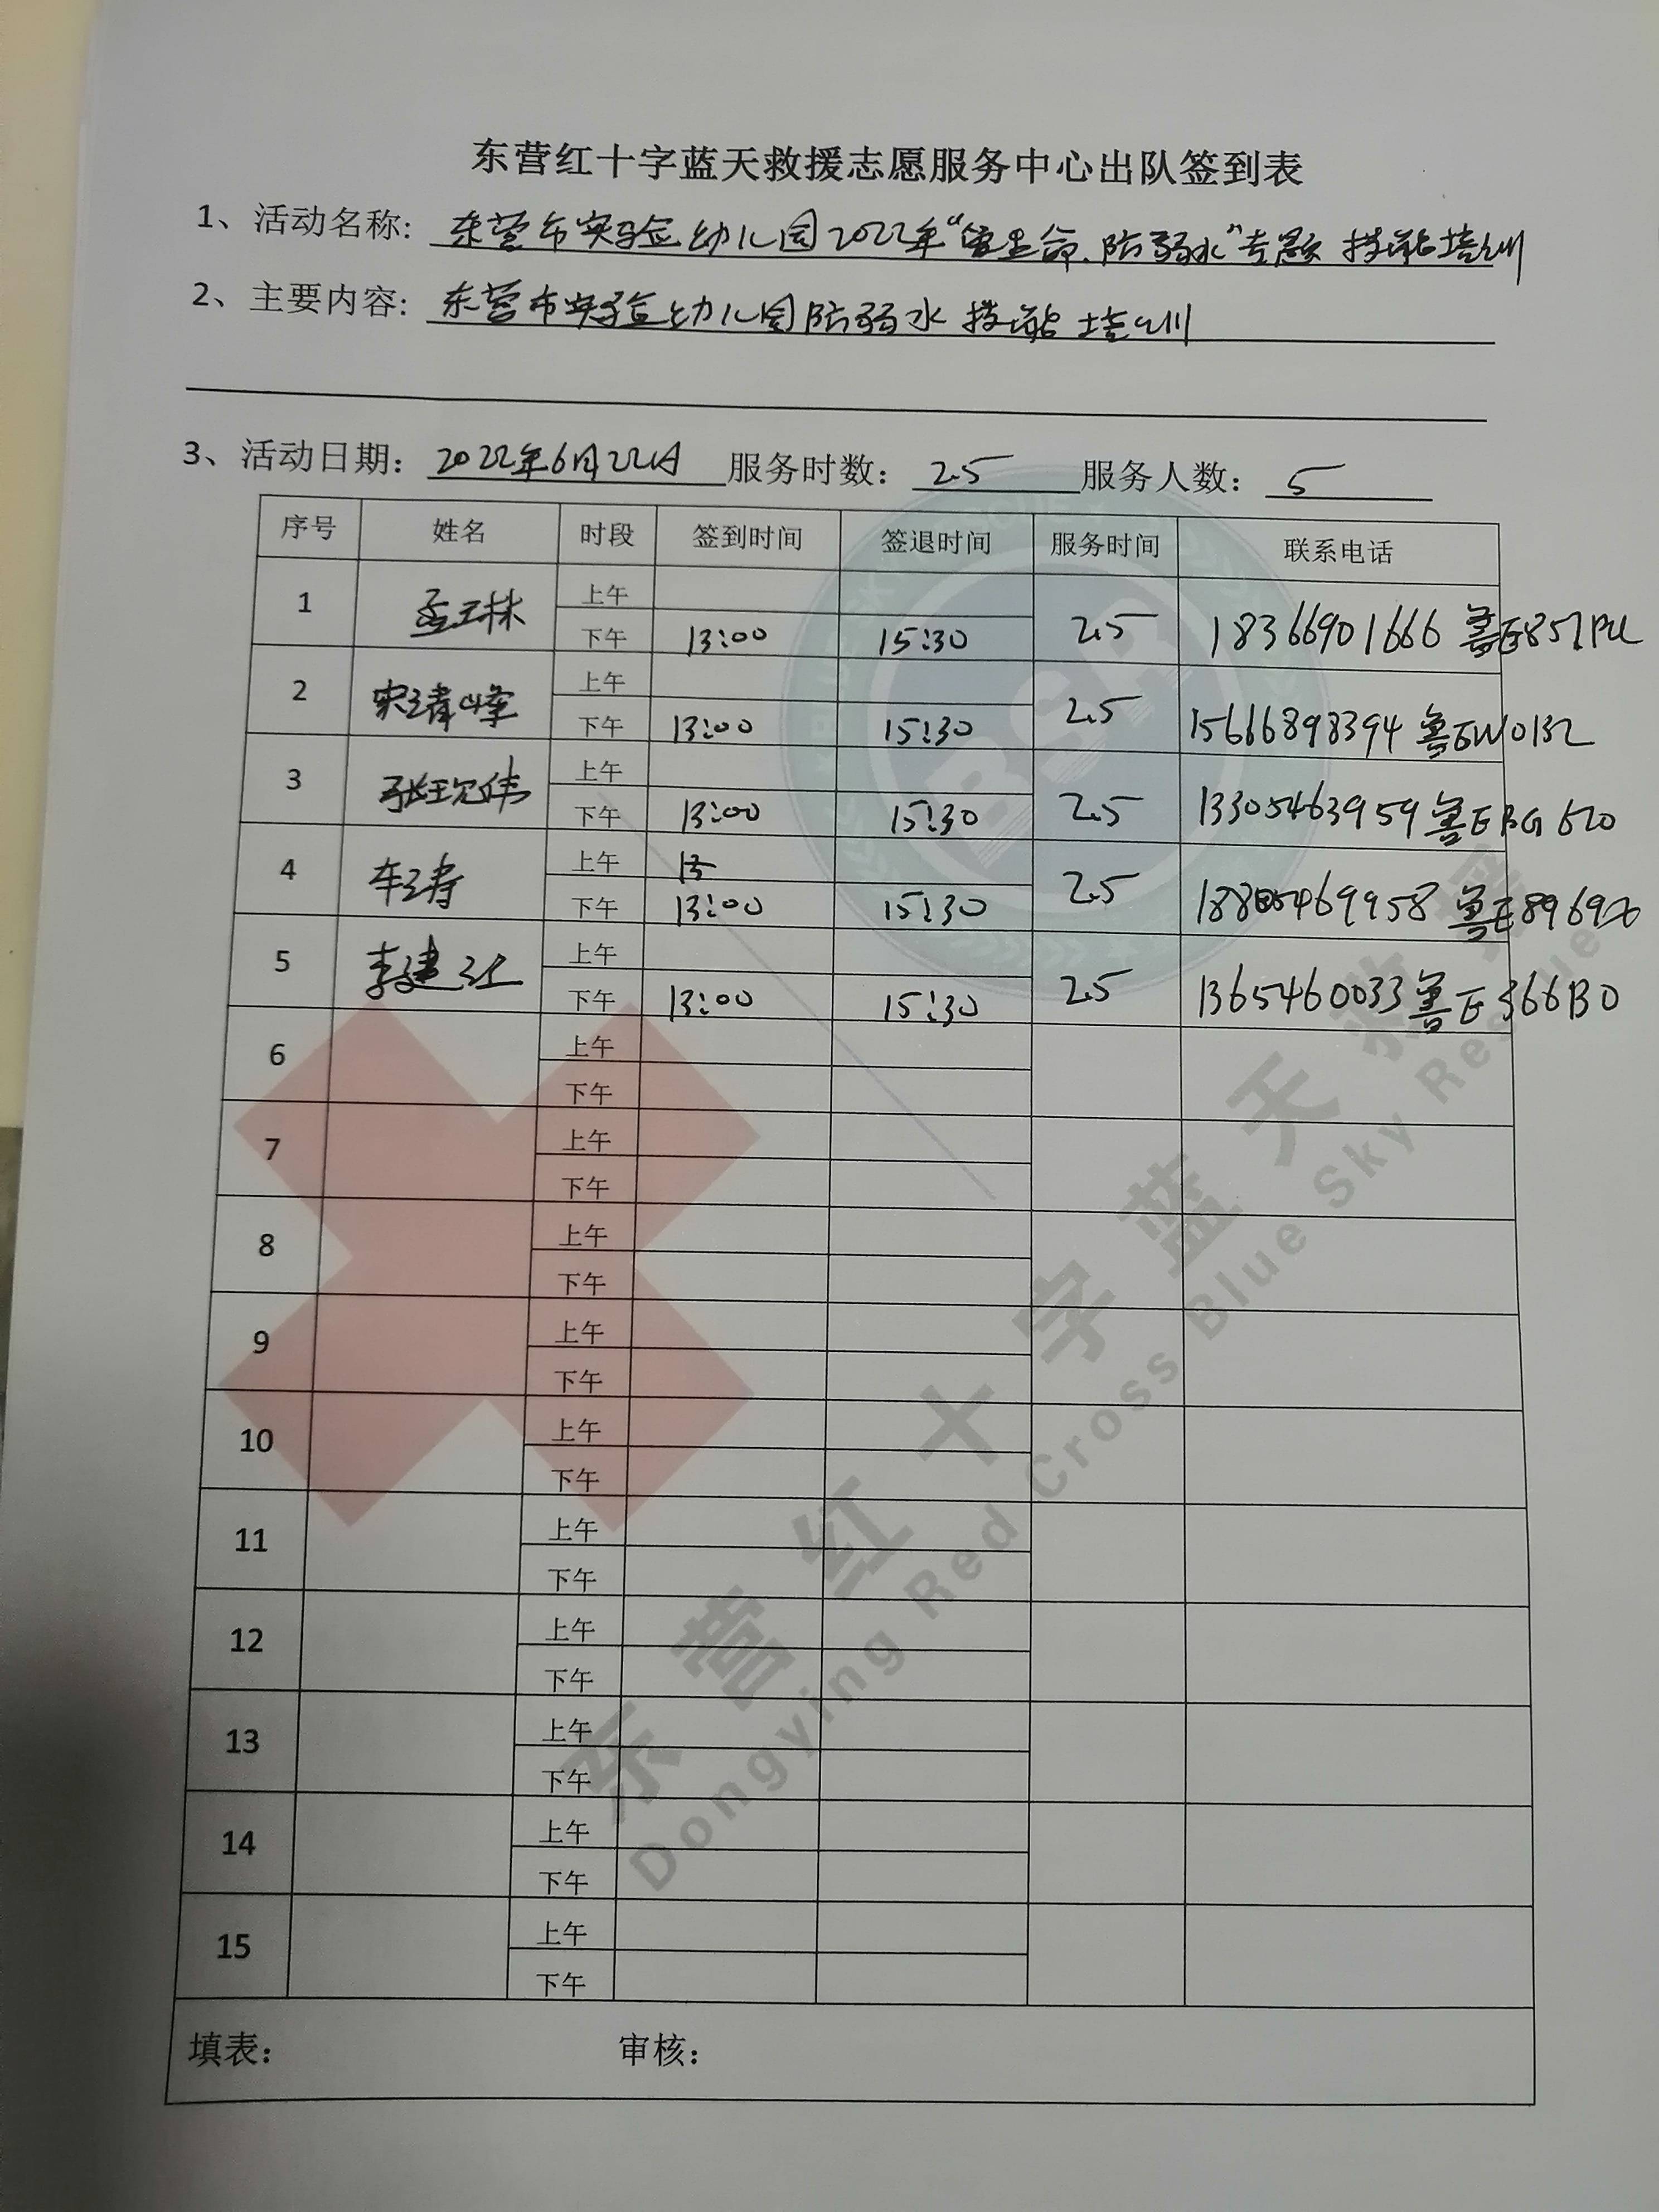 东营红十字蓝天救援志愿服务中心出队签到表
1、活动名称: 东营市实验幼儿园2022年"重生命、防溺水"专题 技能培训
2、主要内容: 东营市实验幼儿园防溺水 技能培训
3、活动日期: 2022年6月22日 服务时数: 2.5 服务人数: 5
序号 姓名 时段 签到时间 签退时间 服务时间 联系电话
1 孟玉林 上午
下午 13:00 15:30 2.5 18366901666 鲁E
2 宋靖峰 上午
下午 13:00 15:30 2.5 15666898394 鲁EW0132
3 张 伟 上午
下午 13:00 15:30 2.5 13305463959 鲁EBG620
4 车涛 上午
下午 13:00 15:30 2.5 鲁E
5 李建江 上午
下午 13:00 15:30 2.5 13654660033 鲁E366B0
6 上午
下午
7 上午
下午
8 上午
下午
9 上午
下午
10 上午
下午
11 上午
下午
12 上午
下午
13 上午
下午
14 上午
下午
15 上午
下午
填表: 审核:
东营红十字蓝天救援
Dongying Red Cross Blue Sky Rescue
BSR